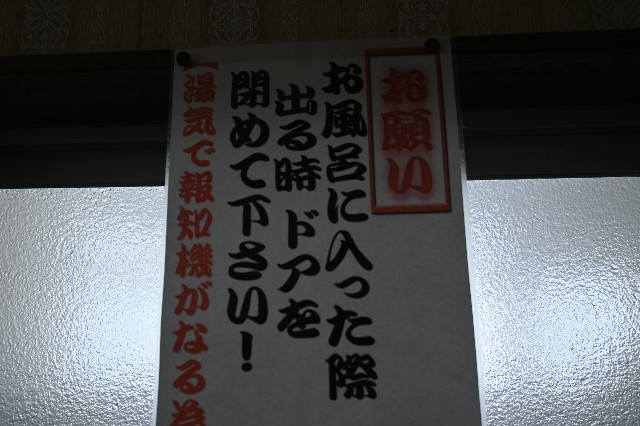 お願い
お風呂に入った際
出る時 ドアを
閉めて下さい！
【湯気で報知機がなる為